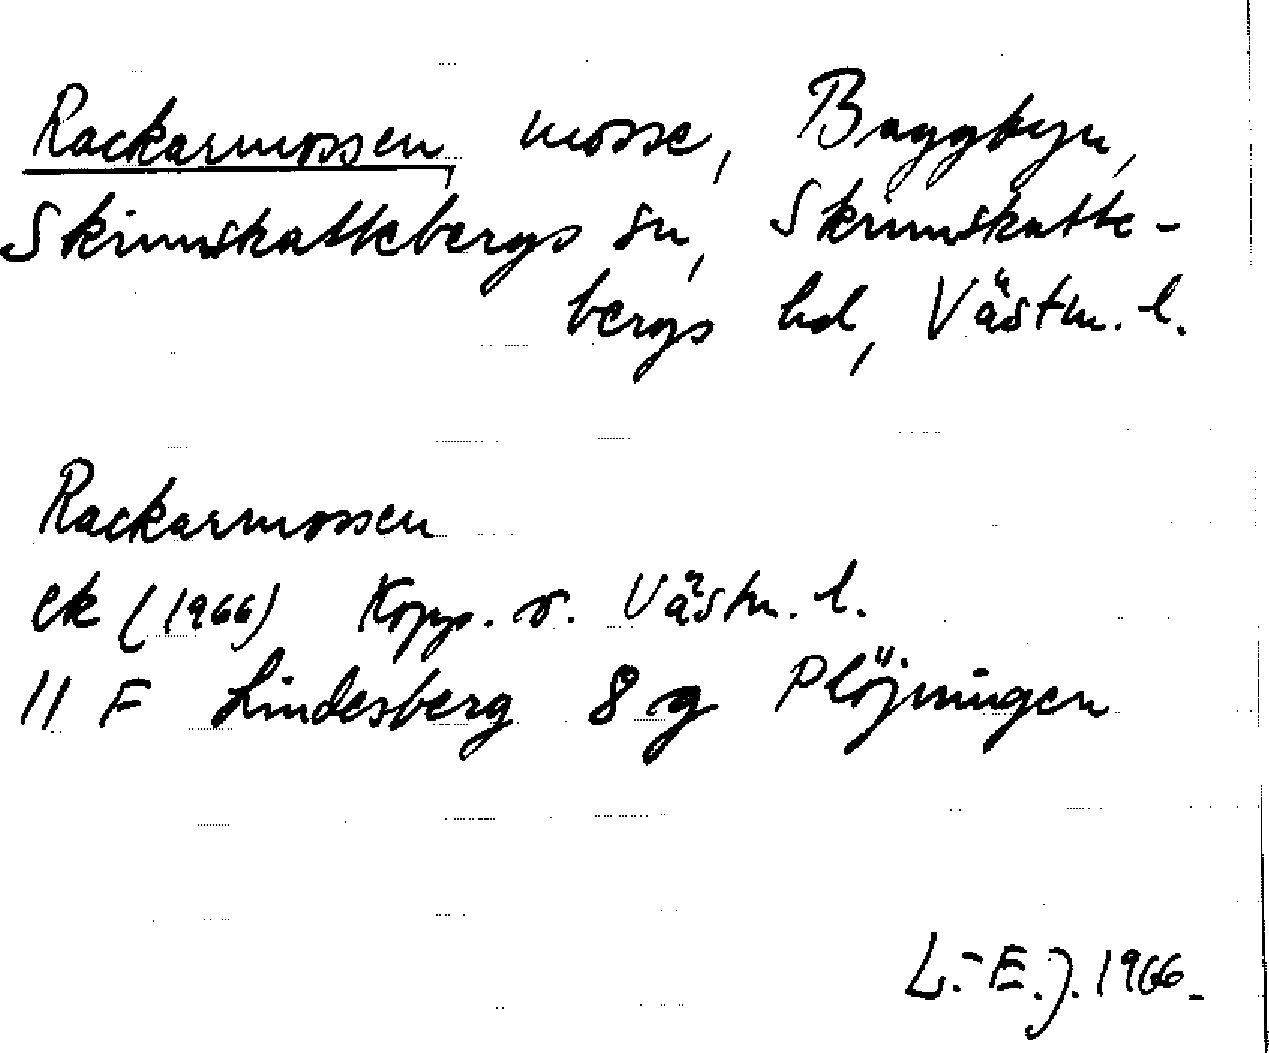 Rackarmossen, mosse, Baggbyn,
Skinnskattebergs sn, Skinnskatte-
bergs hd, Västm. l.
Rackarmossen
ek (1966) Kopp. o. Västm. l.
11 F Lindesberg 8 g Plöjningen
L.-E. J. 1966.